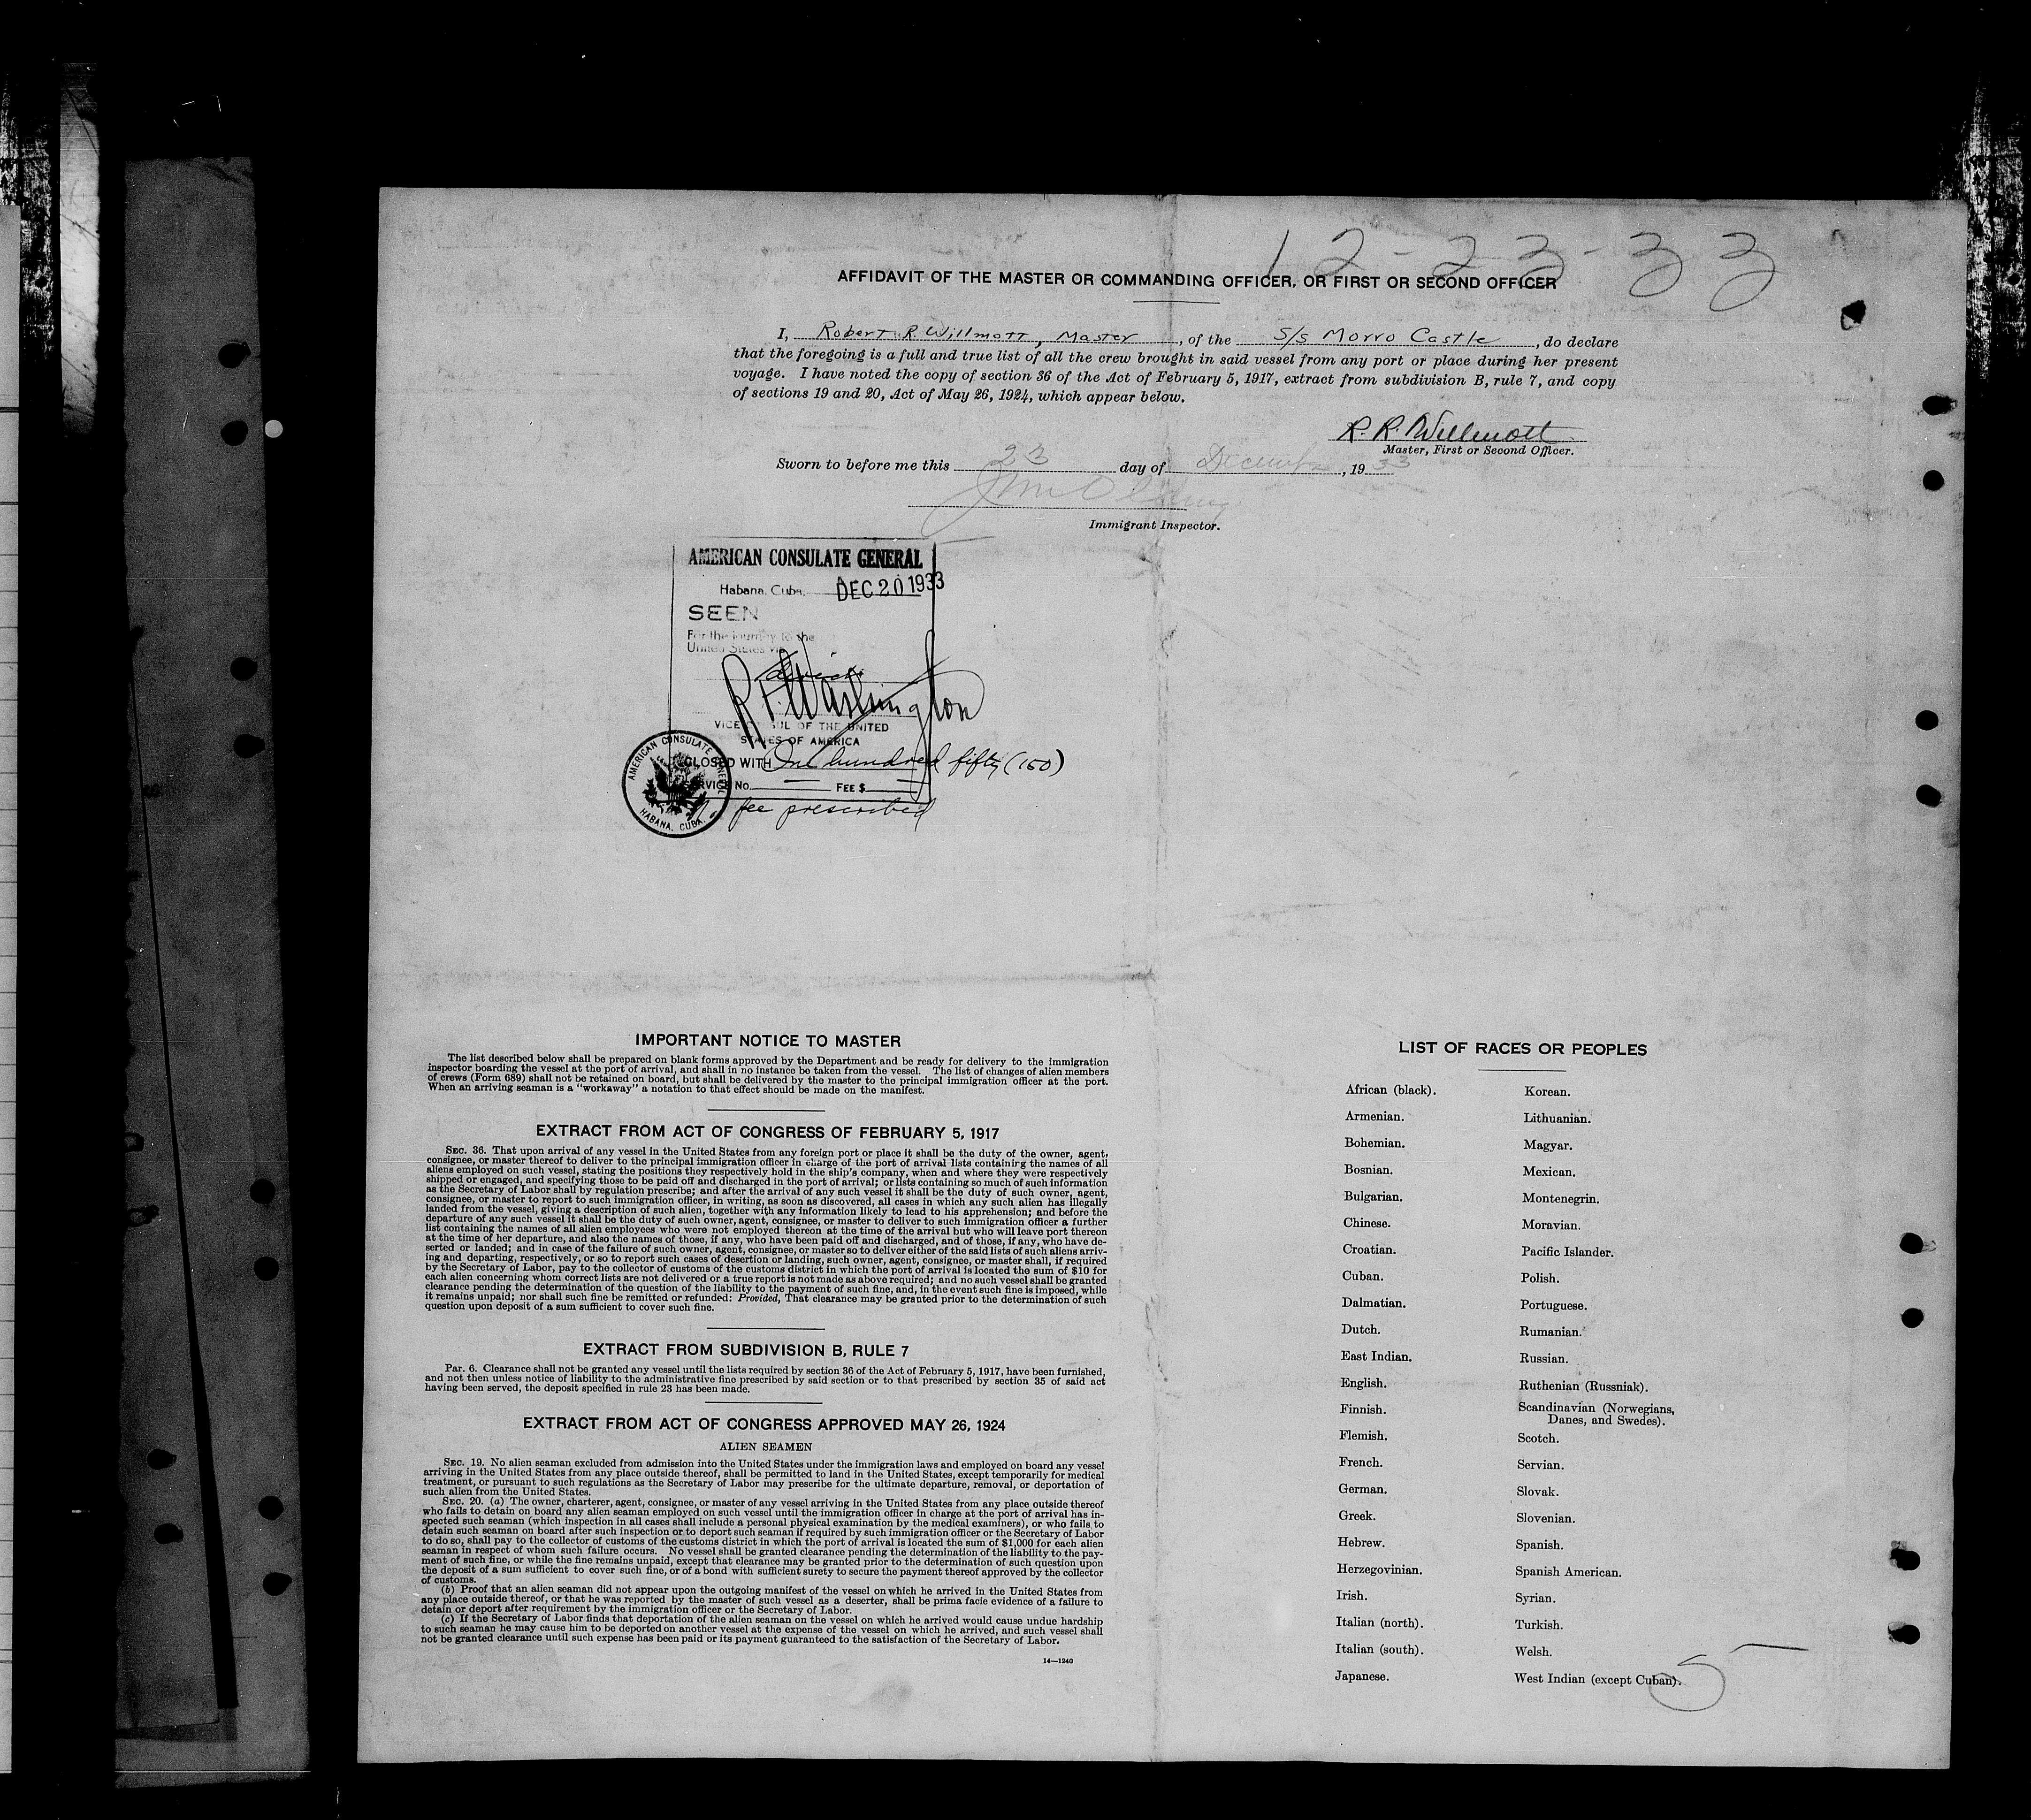 12-23-33
AFFIDAVIT OF THE MASTER OR COMMANDING OFFICER, OR FIRST OR SECOND OFFICER
I, Robert R Willmott, Master, of the S/s Morro Castle, do declare
that the foregoing is a full and true list of all the crew brought in said vessel from any port or place during her present
voyage. I have noted the copy of section 36 of the Act of February 5, 1917, extract from subdivision B, rule 7, and copy
of sections 19 and 20, Act of May 26, 1924, which appear below.
R. R. Willmott
Master, First or Second Officer.
Sworn to before me this 23 day of December, 1933
Immigrant Inspector.
AMERICAN CONSULATE GENERAL
Habana, Cuba, DEC 20 1933
SEEN
For the journey to the
United States via
R F Washington
VICE CONSUL OF THE UNITED
STATES OF AMERICA
CLOSED WITH One hundred fifty (150)
SERVICE No. FEE $
fee prescribed
AMERICAN CONSULATE GENERAL
HABANA, CUBA.
IMPORTANT NOTICE TO MASTER
The list described below shall be prepared on blank forms approved by the Department and be ready for delivery to the immigration
inspector boarding the vessel at the port of arrival, and shall in no instance be taken from the vessel. The list of changes of alien members
of crews (Form 689) shall not be retained on board, but shall be delivered by the master to the principal immigration officer at the port.
When an arriving seaman is a "workaway" a notation to that effect should be made on the manifest.
EXTRACT FROM ACT OF CONGRESS OF FEBRUARY 5, 1917
SEC. 36. That upon arrival of any vessel in the United States from any foreign port or place it shall be the duty of the owner, agent,
consignee, or master thereof to deliver to the principal immigration officer in charge of the port of arrival lists containing the names of all
aliens employed on such vessel, stating the positions they respectively hold in the ship's company, when and where they were respectively
shipped or engaged, and specifying those to be paid off and discharged in the port of arrival; or lists containing so much of such information
as the Secretary of Labor shall by regulation prescribe; and after the arrival of any such vessel it shall be the duty of such owner, agent,
consignee, or master to report to such immigration officer, in writing, as soon as discovered, all cases in which any such alien has illegally
landed from the vessel, giving a description of such alien, together with any information likely to lead to his apprehension; and before the
departure of any such vessel it shall be the duty of such owner, agent, consignee, or master to deliver to such immigration officer a further
list containing the names of all alien employees who were not employed thereon at the time of the arrival but who will leave port thereon
at the time of her departure, and also the names of those, if any, who have been paid off and discharged, and of those, if any, who have de-
serted or landed; and in case of the failure of such owner, agent, consignee, or master so to deliver either of the said lists of such aliens arriv-
ing and departing, respectively, or so to report such cases of desertion or landing, such owner, agent, consignee, or master shall, if required
by the Secretary of Labor, pay to the collector of customs of the customs district in which the port of arrival is located the sum of $10 for
each alien concerning whom correct lists are not delivered or a true report is not made as above required; and no such vessel shall be granted
clearance pending the determination of the question of the liability to the payment of such fine, and, in the event such fine is imposed, while
it remains unpaid; nor shall such fine be remitted or refunded: Provided, That clearance may be granted prior to the determination of such
question upon deposit of a sum sufficient to cover such fine.
EXTRACT FROM SUBDIVISION B, RULE 7
Par. 6. Clearance shall not be granted any vessel until the lists required by section 36 of the Act of February 5, 1917, have been furnished,
and not then unless notice of liability to the administrative fine prescribed by said section or to that prescribed by section 35 of said act
having been served, the deposit specified in rule 23 has been made.
EXTRACT FROM ACT OF CONGRESS APPROVED MAY 26, 1924
ALIEN SEAMEN
SEC. 19. No alien seaman excluded from admission into the United States under the immigration laws and employed on board any vessel
arriving in the United States from any place outside thereof, shall be permitted to land in the United States, except temporarily for medical
treatment, or pursuant to such regulations as the Secretary of Labor may prescribe for the ultimate departure, removal, or deportation of
such alien from the United States.
SEC. 20. (a) The owner, charterer, agent, consignee, or master of any vessel arriving in the United States from any place outside thereof
who fails to detain on board any alien seaman employed on such vessel until the immigration officer in charge at the port of arrival has in-
spected such seaman (which inspection in all cases shall include a personal physical examination by the medical examiners), or who fails to
detain such seaman on board after such inspection or to deport such seaman if required by such immigration officer or the Secretary of Labor
to do so, shall pay to the collector of customs of the customs district in which the port of arrival is located the sum of $1,000 for each alien
seaman in respect of whom such failure occurs. No vessel shall be granted clearance pending the determination of the liability to the pay-
ment of such fine, or while the fine remains unpaid, except that clearance may be granted prior to the determination of such question upon
the deposit of a sum sufficient to cover such fine, or of a bond with sufficient surety to secure the payment thereof approved by the collector
of customs.
(b) Proof that an alien seaman did not appear upon the outgoing manifest of the vessel on which he arrived in the United States from
any place outside thereof, or that he was reported by the master of such vessel as a deserter, shall be prima facie evidence of a failure to
detain or deport after requirement by the immigration officer or the Secretary of Labor.
(c) If the Secretary of Labor finds that deportation of the alien seaman on the vessel on which he arrived would cause undue hardship
to such seaman he may cause him to be deported on another vessel at the expense of the vessel on which he arrived, and such vessel shall
not be granted clearance until such expense has been paid or its payment guaranteed to the satisfaction of the Secretary of Labor.
14—1240
LIST OF RACES OR PEOPLES
African (black).
Armenian.
Bohemian.
Bosnian.
Bulgarian.
Chinese.
Croatian.
Cuban.
Dalmatian.
Dutch.
East Indian.
English.
Finnish.
Flemish.
French.
German.
Greek.
Hebrew.
Herzegovinian.
Irish.
Italian (north).
Italian (south).
Japanese.
Korean.
Lithuanian.
Magyar.
Mexican.
Montenegrin.
Moravian.
Pacific Islander.
Polish.
Portuguese.
Rumanian.
Russian.
Ruthenian (Russniak).
Scandinavian (Norwegians,
Danes, and Swedes).
Scotch.
Servian.
Slovak.
Slovenian.
Spanish.
Spanish American.
Syrian.
Turkish.
Welsh.
West Indian (except Cuban).
5